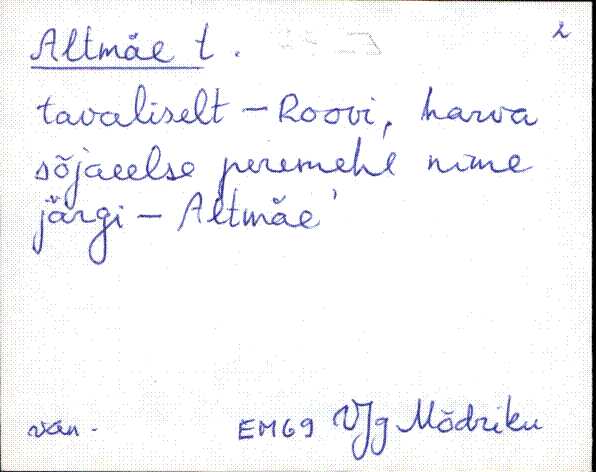 Altmäe t. 2
tavaliselt – Roovi, harva
sõjaeelse peremehe nime
järgi – Altmäe'
van. EM69 VJg Mõdriku